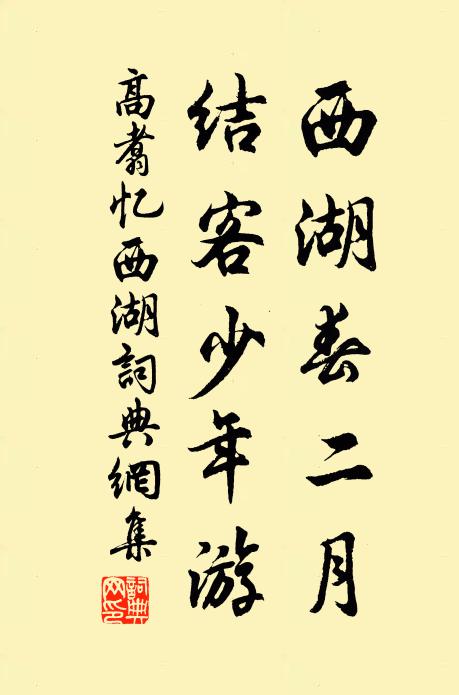 西湖春二月
结客少年游
高翥忆西湖詞典網集
詞典网印